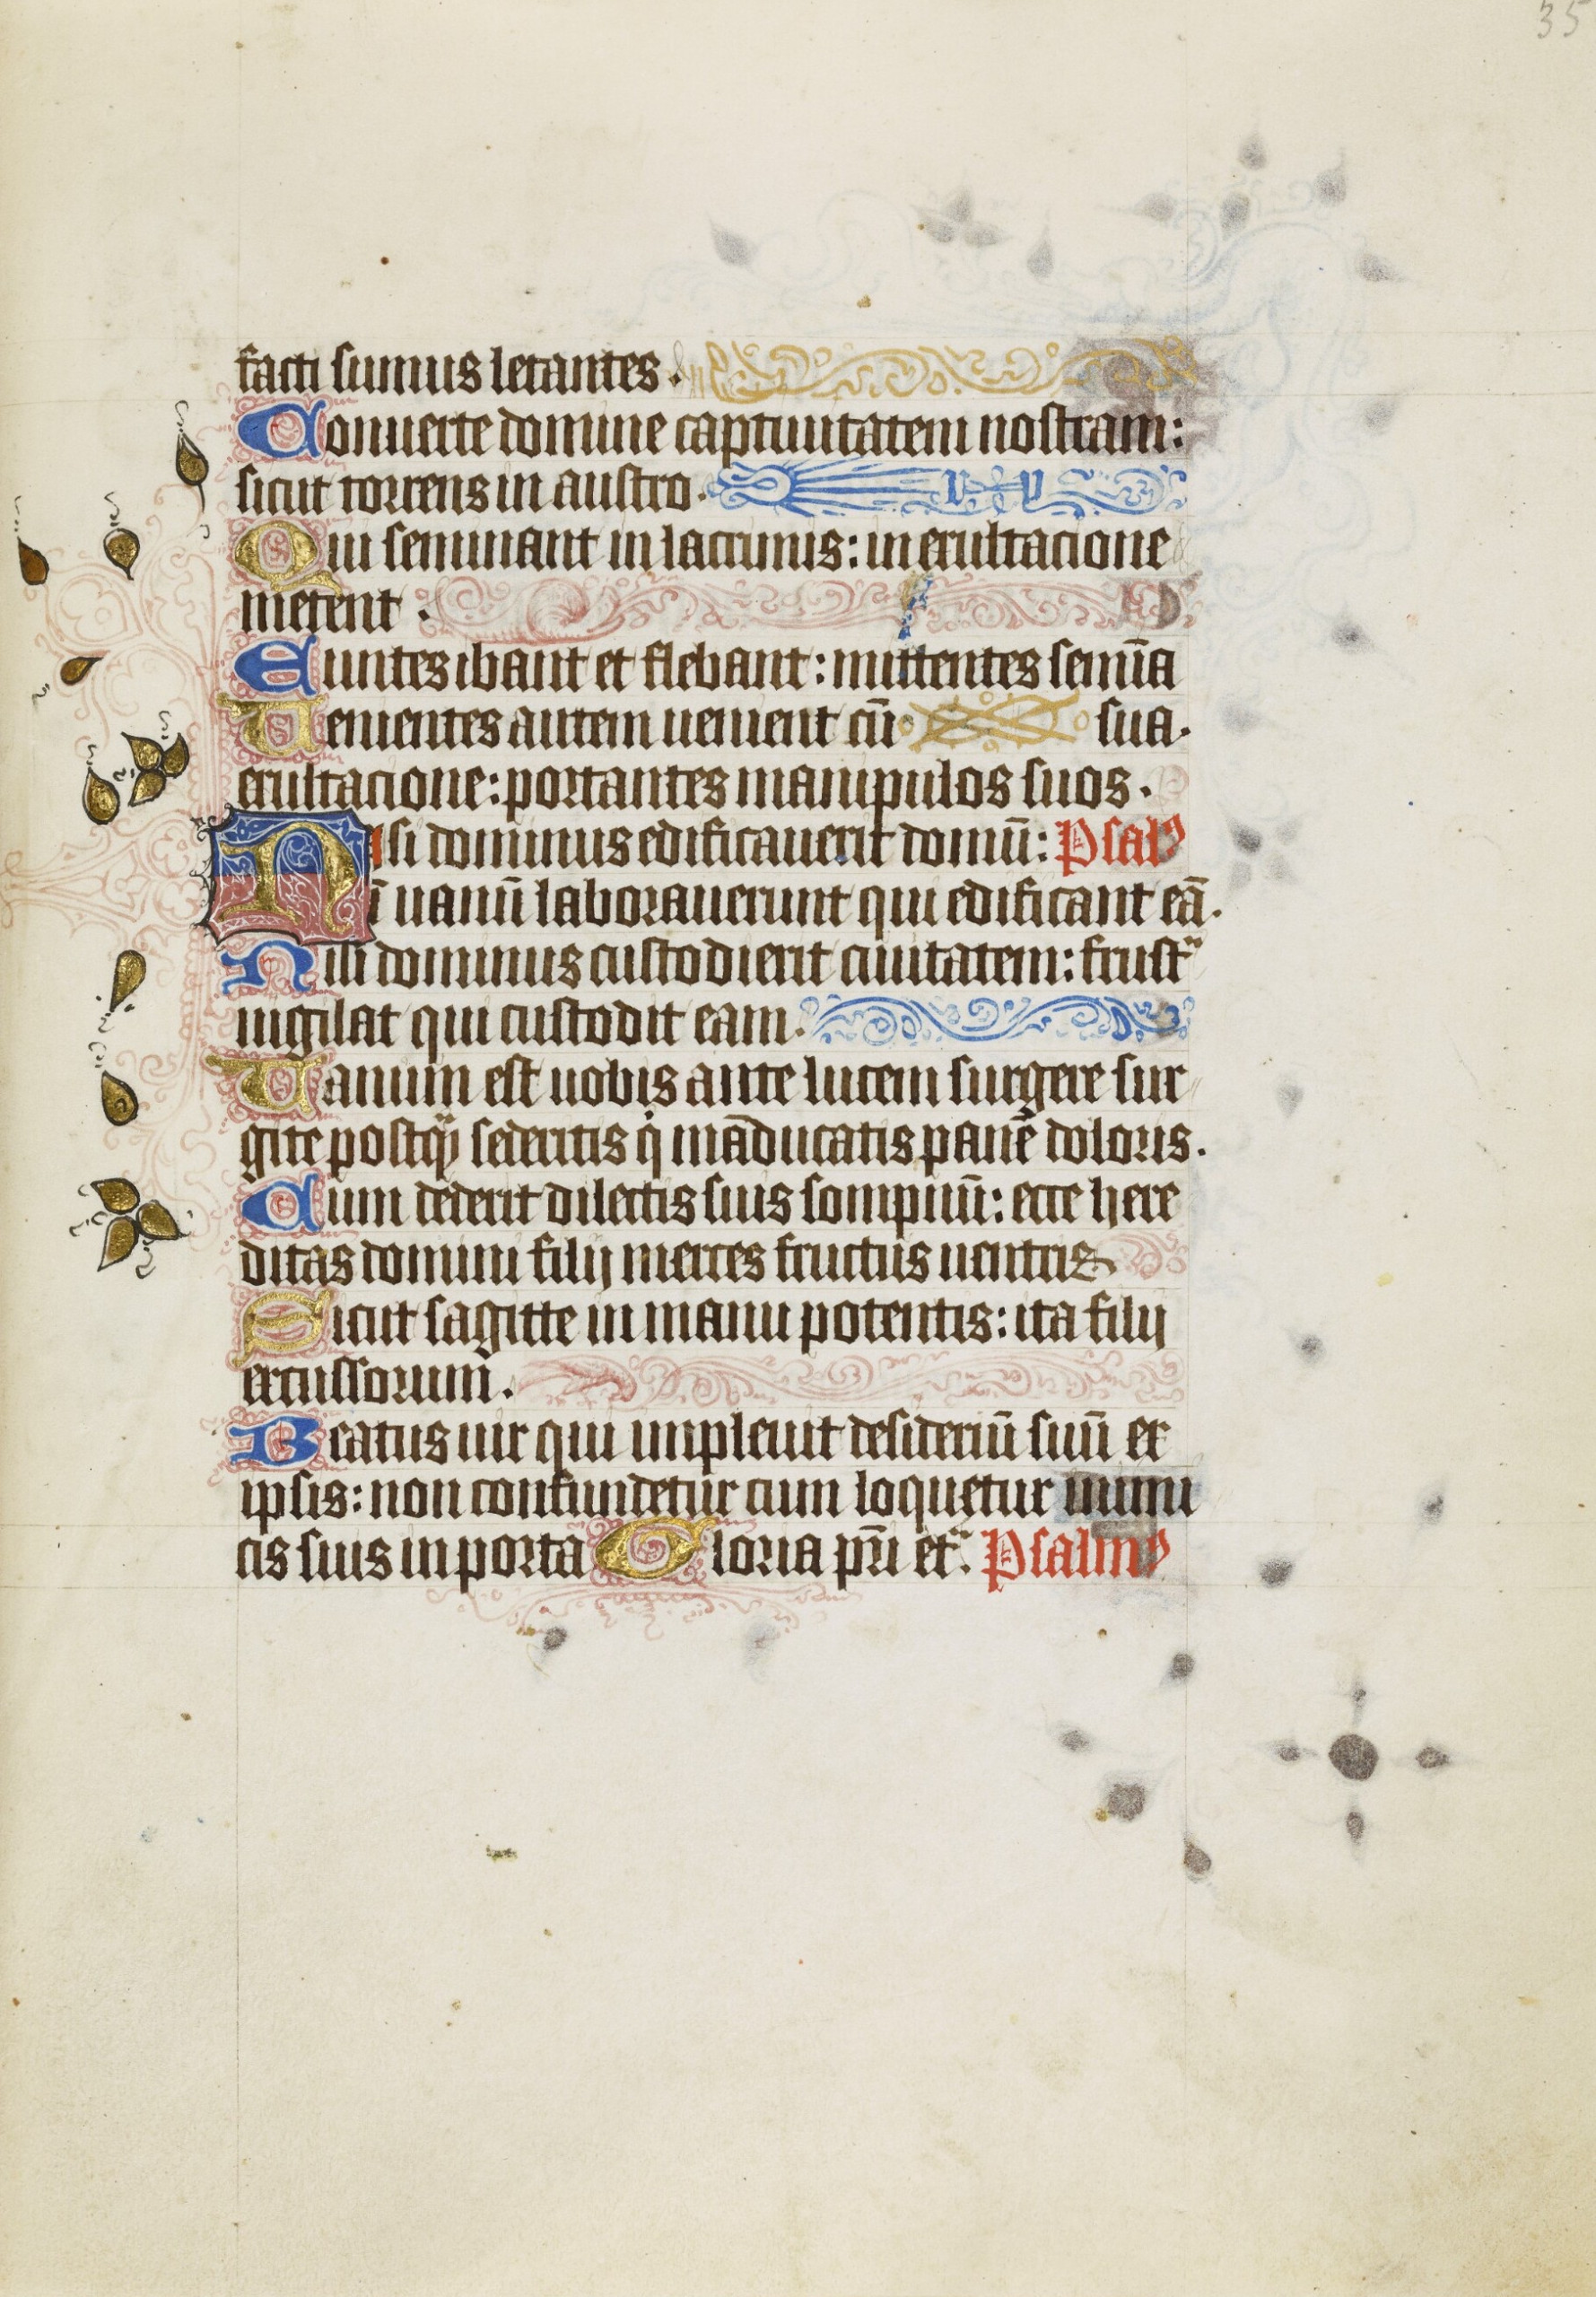 35
facti sumus letantes.
Conuerte domine captiuitatem nostram:
sicut torrens in austro.
Qui seminant in lacrimis: in exultacione
metent.
Euntes ibant et flebant: mittentes semīa
Uenientes autem uenient cū sua.
exultacione: portantes manipulos suos.
Nisi dominus edificauerit domū: Psalꝰ
ī uanū laborauerunt qui edificant eā.
Nisi dominus custodierit ciuitatem: frustᵃ
uigilat qui custodit eam.
Uanum est uobis ante lucem surgere sur
gite postqᵃ̄ sederitis q̇ māducatis panē doloris.
Cum dederit dilectis suis sompnū: ecce here
ditas domini filij merces fructus uentris
Sicut sagitte in manu potentis: ita filij
excussorum.
Beatus uir qui impleuit desideriū suū ex
ipsis: non confundetur cum loquetur inimi
cis suis in porta Gloria pr̄i etᵃ. Psalmꝰ